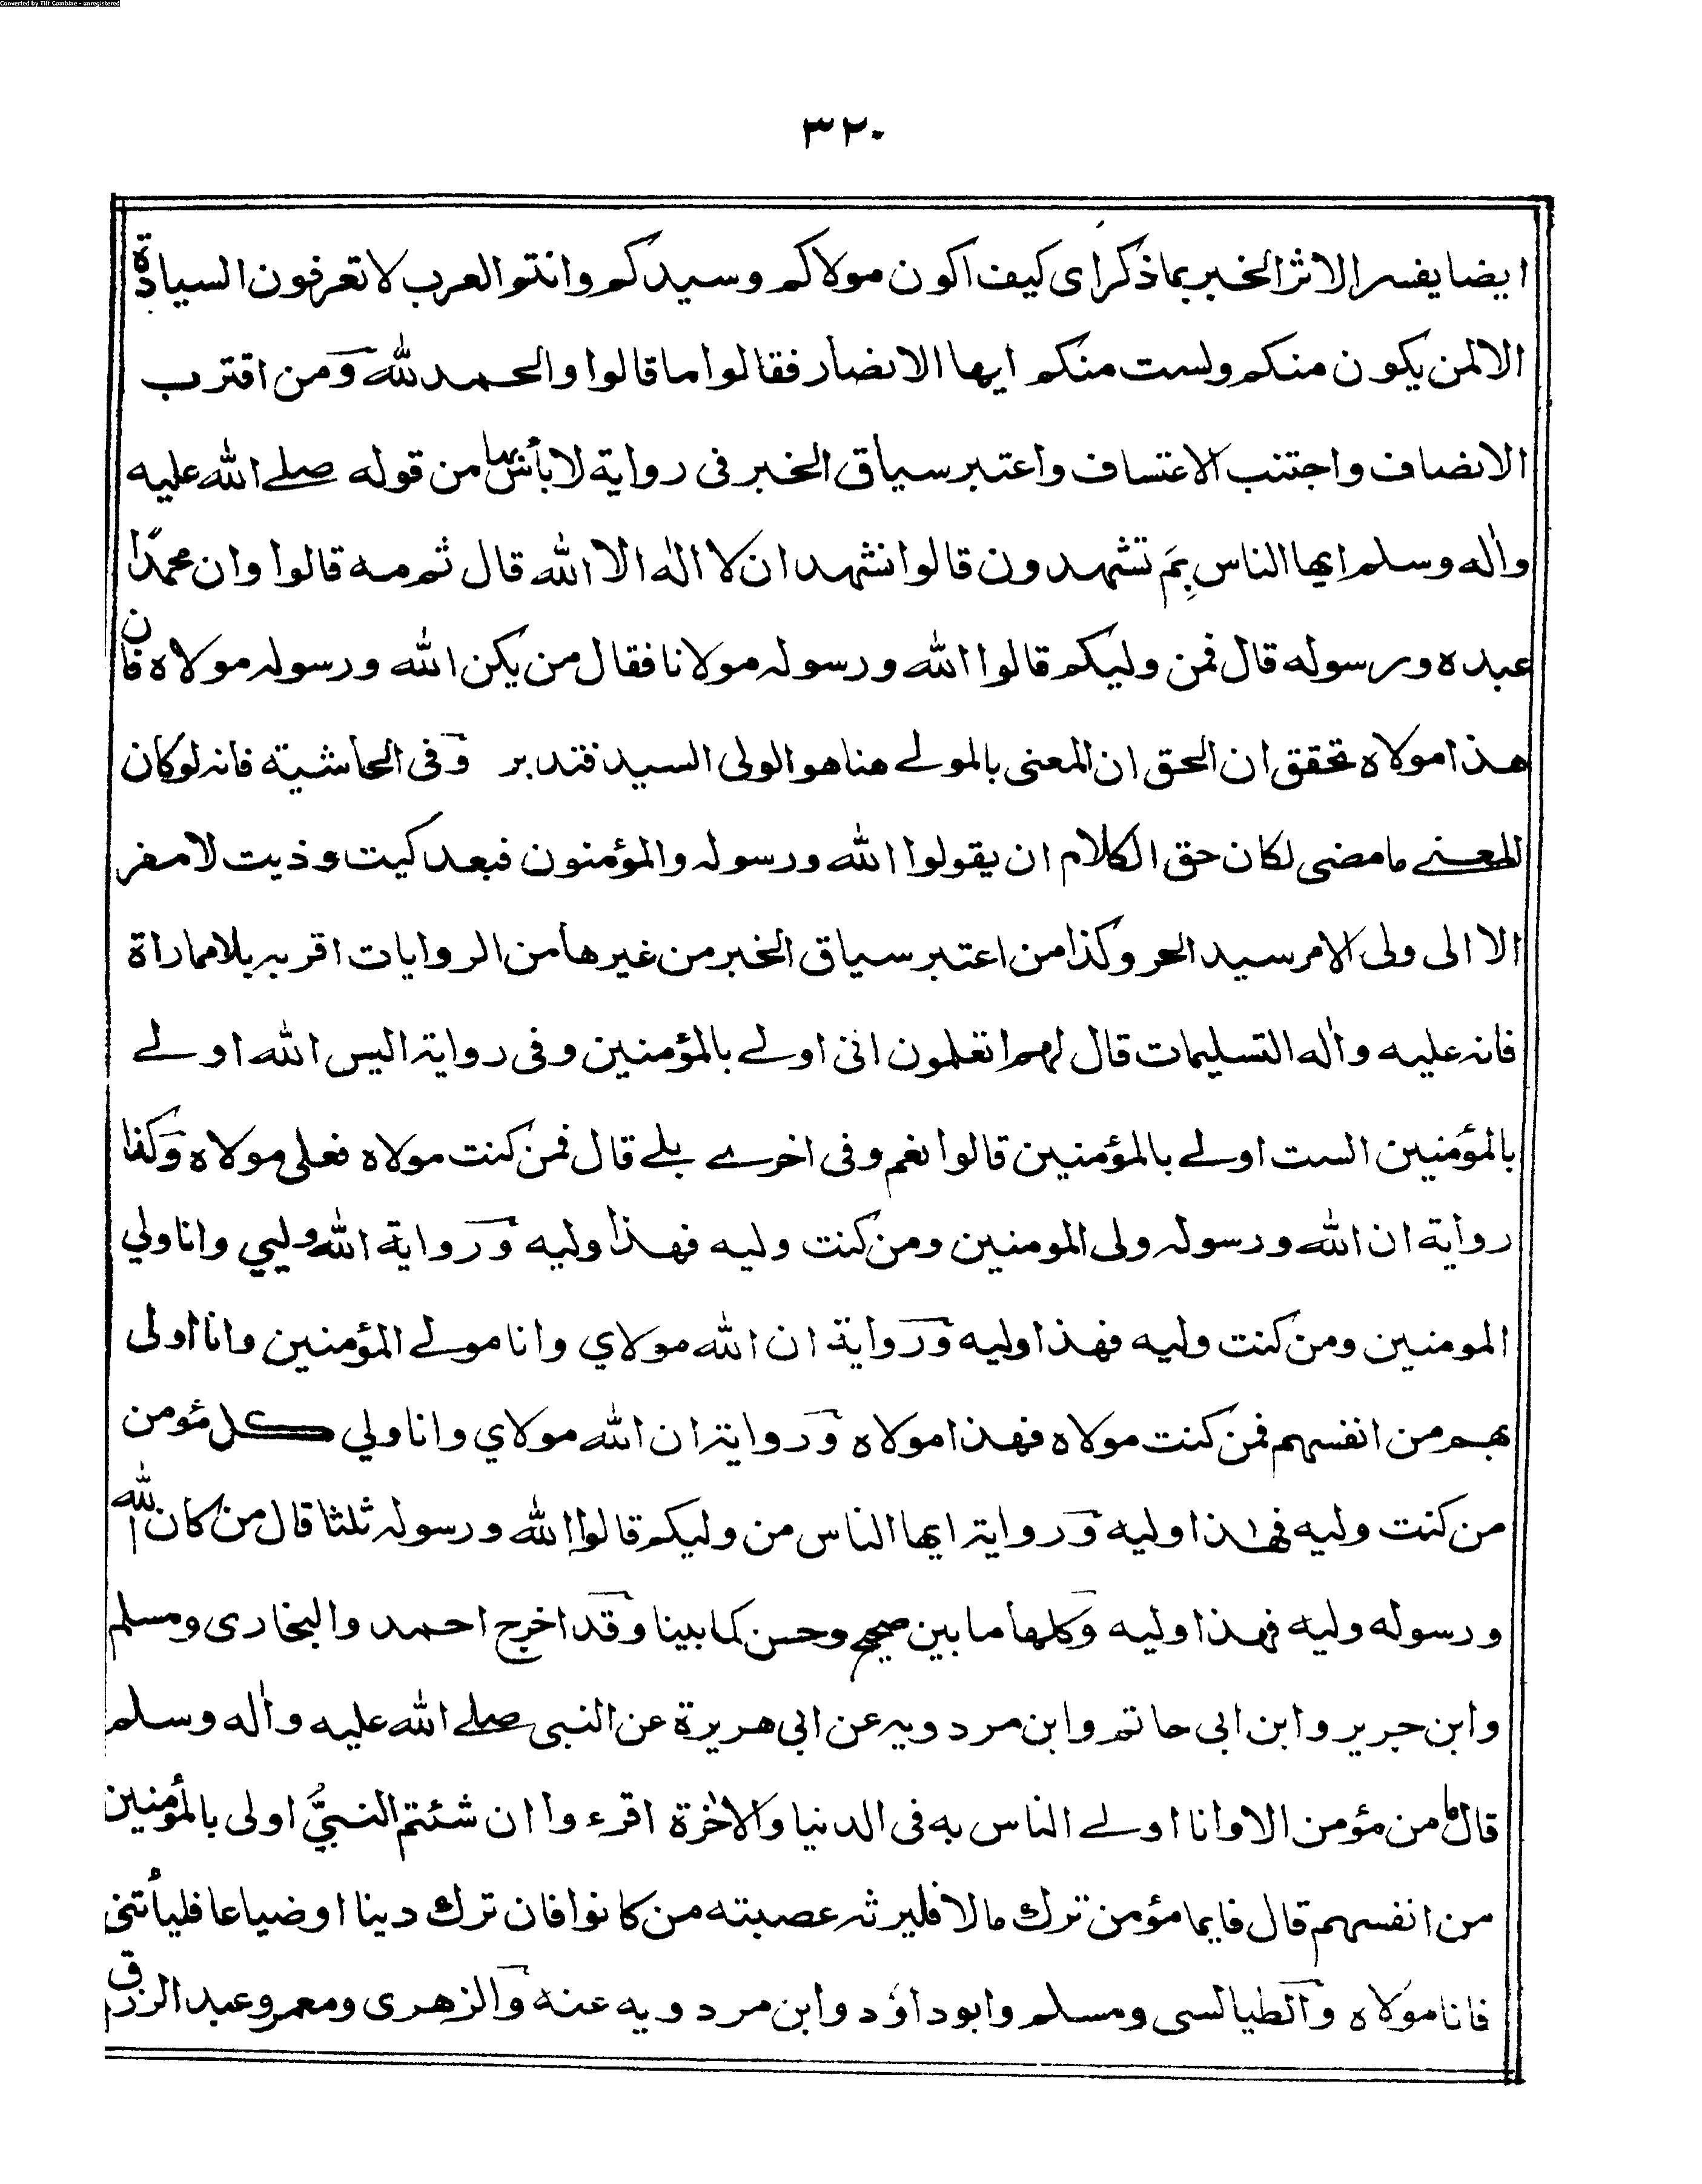 Converted by Tiff Combine - unregistered
٣٢٠
ايضا يفسر الاثر الخبر بما ذكر اى كيف اكون مولاكم وسيدكم وانتم العرب لا تعرفون السيادة
الا لمن يكون منكم ولست منكم ايها الانصار فقالوا ما قالوا والحمد لله ومن اقترب
الانصاف واجتنب الاعتساف واعتبر سياق الخبر فى رواية لا بأس بها من قوله صلے الله عليه
واٰله وسلم ايها الناس بِمَ تشهدون قالوا نشهد ان لا اله الا الله قال ثم مه قالوا وان محمدًا
عبده ورسوله قال فمن وليكم قالوا الله ورسوله مولانا فقال من يكن الله ورسوله مولاه فان
هذا مولاه تحقق ان الحق ان المعنى بالمولے هنا هو الولى السيد فتدبر وفى الحاشية فانه لو كان
المعنے ما مضى لكان حق الكلام ان يقولوا الله ورسوله والمؤمنون فبعد كيت وذيت لا مفر
الا الى ولى الامر سيد الحر وكذا من اعتبر سياق الخبر من غيرها من الروايات اقر به بلا مماراة
فانه عليه واٰله التسليمات قال لهم اتعلمون انى اولے بالمؤمنين وفى رواية اليس الله اولے
بالمؤمنين الست اولے بالمؤمنين قالوا نعم وفى اخرے بلے قال فمن كنت مولاه فعلى مولاه وكذا
رواية ان الله ورسوله ولى المومنين ومن كنت وليه فهذا وليه ورواية الله وليي وانا ولي
المومنين ومن كنت وليه فهذا وليه ورواية ان الله مولاي وانا مولے المؤمنين وانا اولى
بهم من انفسهم فمن كنت مولاه فهذا مولاه ورواية ان الله مولاي وانا ولي كل مؤمن
من كنت وليه فهٰذا وليه ورواية ايها الناس من وليكم قالوا الله ورسوله ثلثا قال من كان الله
ورسوله وليه فهذا وليه وكلها ما بين صحيح وحسن كما بينا وقد اخرج احمد والبخارى ومسلم
وابن جرير وابن ابى حاتم وابن مردويه عن ابي هريرة عن النبى صلے الله عليه واٰله وسلم
قال ما من مؤمن الا وانا اولے الناس به فى الدنيا والاخرة اقرءوا ان شئتم النبيُّ اولى بالمؤمنين
من انفسهم قال فايما مؤمن ترك مالا فليرثه عصبته من كانوا فان ترك دينا او ضياعا فليأتنى
فانا مولاه والطيالسى ومسلم وابو داؤد وابن مردويه عنه والزهرى ومعمر وعبد الرزق